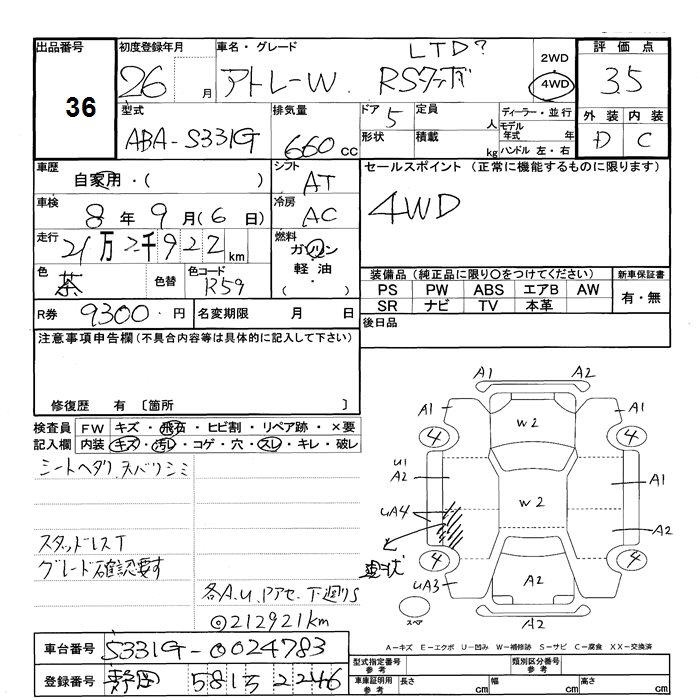 出品番号
36
初度登録年月
26 月
車名・グレード
アトレーW RSターボ
LTD?
2WD
4WD
評価点
3.5
型式
ABA-S331G
排気量
660 cc
ドア 5
形状
定員 人
積載 kg
ディーラー・並行
モデル年式 年
ハンドル 左・右
外装 内装
D C
車歴
自家用・( )
シフト
AT
セールスポイント (正常に機能するものに限ります)
4WD
車検
8 年 9 月(6 日)
冷房
AC
走行
21万2千922 km
燃料
ガソリン
軽油
( ・ )
色
茶
色替
色コード
R59
装備品(純正品に限り〇をつけてください)
新車保証書
PS PW ABS エアB AW
有・無
SR ナビ TV 本革
R券 9300・円
名変期限 月 日
後日品
注意事項申告欄(不具合内容等は具体的に記入して下さい)
修復歴 有 〔箇所 〕
検査員 FW キズ・飛石・ヒビ割・リペア跡・×要
記入欄 内装 キズ・汚レ・コゲ・穴・スレ・キレ・破レ
シートヘタリ.スバリシミ
スタッドレスT
グレード確認要す
各A.U.Pアセ.下廻りS
◎212921km
A1 A2
A1 W2 A1
4 4
U1
A2 A1
W2
UA4
A2 A2
現状
4 4
UA3 A2
スペア A2
A-キズ E-エクボ U-凹み W-補修跡 S-サビ C-腐食 XX-交換済
車台番号 S331G-0024783
登録番号 静岡 581 う 2246
型式指定番号 参考
類別区分番号 参考
車庫証明用 参考
長さ cm 幅 cm 高さ cm